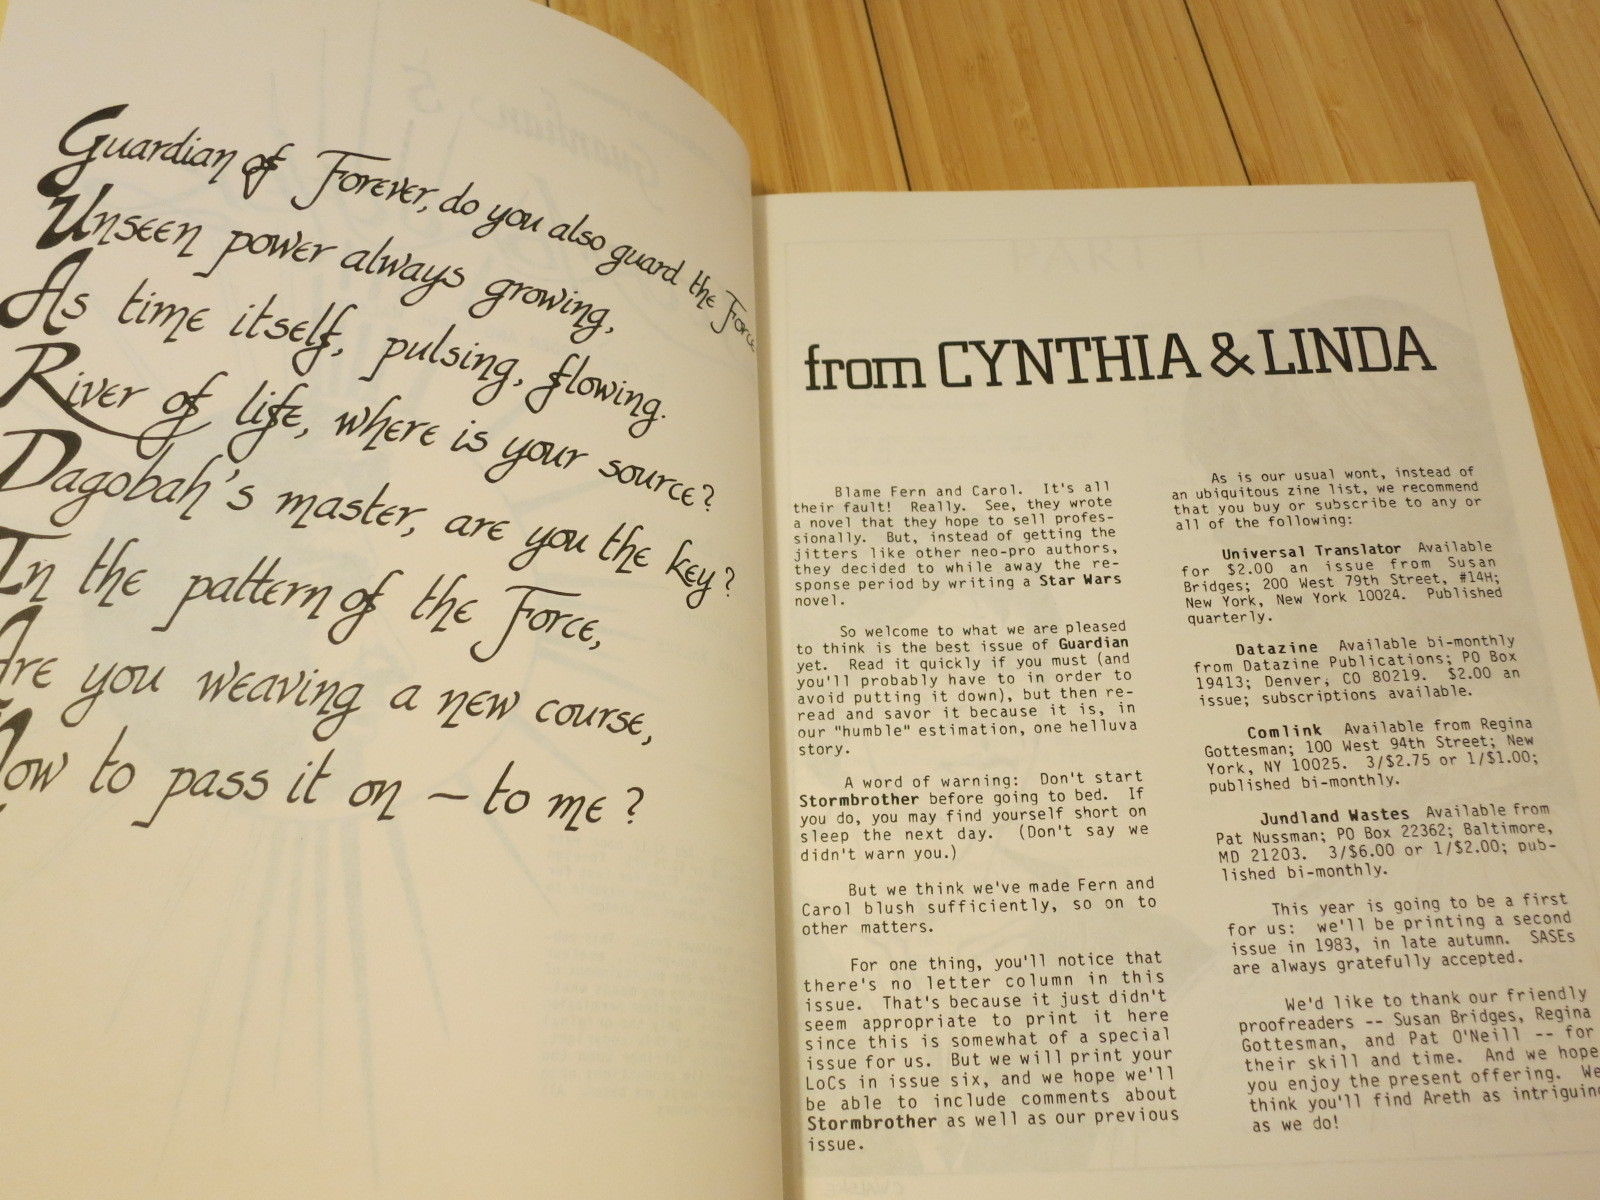 Guardian of Forever, do you also guard the Force
Unseen power always growing,
As time itself, pulsing, flowing.
River of life, where is your source?
Dagobah's master, are you the key?
In the pattern of the Force,
Are you weaving a new course,
to pass it on — to me?
from CYNTHIA & LINDA
Blame Fern and Carol. It's all
their fault! Really. See, they wrote
a novel that they hope to sell profes-
sionally. But, instead of getting the
jitters like other neo-pro authors,
they decided to while away the re-
sponse period by writing a Star Wars
novel.
So welcome to what we are pleased
to think is the best issue of Guardian
yet. Read it quickly if you must (and
you'll probably have to in order to
avoid putting it down), but then re-
read and savor it because it is, in
our "humble" estimation, one helluva
story.
A word of warning: Don't start
Stormbrother before going to bed. If
you do, you may find yourself short on
sleep the next day. (Don't say we
didn't warn you.)
But we think we've made Fern and
Carol blush sufficiently, so on to
other matters.
For one thing, you'll notice that
there's no letter column in this
issue. That's because it just didn't
seem appropriate to print it here
since this is somewhat of a special
issue for us. But we will print your
LoCs in issue six, and we hope we'll
be able to include comments about
Stormbrother as well as our previous
issue.
As is our usual wont, instead of
an ubiquitous zine list, we recommend
that you buy or subscribe to any or
all of the following:
Universal Translator Available
for $2.00 an issue from Susan
Bridges; 200 West 79th Street, #14H;
New York, New York 10024. Published
quarterly.
Datazine Available bi-monthly
from Datazine Publications; PO Box
19413; Denver, CO 80219. $2.00 an
issue; subscriptions available.
Comlink Available from Regina
Gottesman; 100 West 94th Street; New
York, NY 10025. 3/$2.75 or 1/$1.00;
published bi-monthly.
Jundland Wastes Available from
Pat Nussman; PO Box 22362; Baltimore,
MD 21203. 3/$6.00 or 1/$2.00; pub-
lished bi-monthly.
This year is going to be a first
for us: we'll be printing a second
issue in 1983, in late autumn. SASEs
are always gratefully accepted.
We'd like to thank our friendly
proofreaders -- Susan Bridges, Regina
Gottesman, and Pat O'Neill -- for
their skill and time. And we hope
you enjoy the present offering. We
think you'll find Areth as intriguing
as we do!